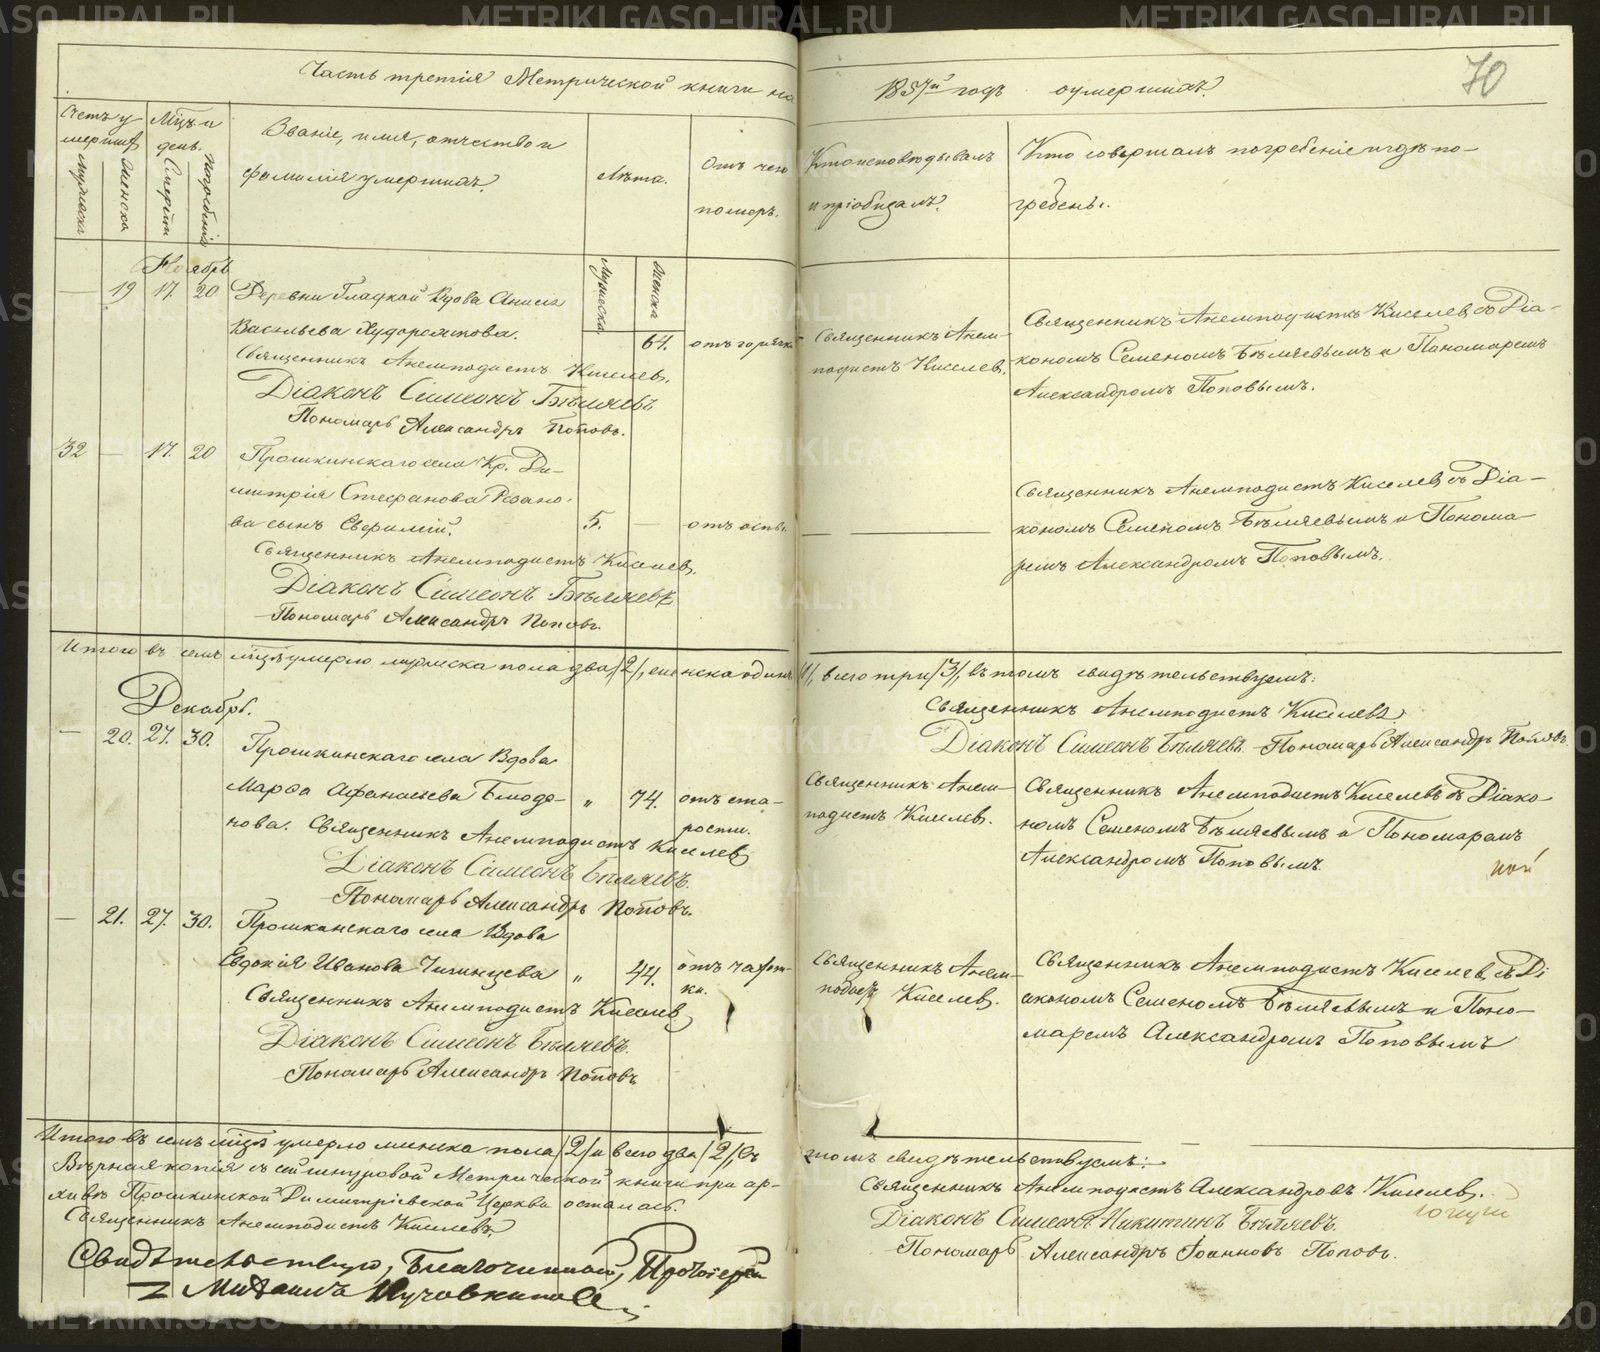 Часть третія Метрической книги на
1857й годъ оумершихъ.
70
Счетъ у
мершихъ
Мужеска
Женска
Мцъ и
день.
Смерти
Погребенія
Званіе, имя, отчество и
фамилія умершихъ.
Лѣта.
Мужеска
Женска
Отъ чего
померъ.
Кто исповѣдывалъ
и пріобщалъ.
Кто совершалъ погребеніе и гдѣ по-
гребены.
Ноябрь
— 19 17. 20 Деревни Гладкой Вдова Анисья
Васильева Худорожкова. 64. отъ горячки
Священникъ Анемподистъ Киселев.
Діаконъ Симеонъ Бѣляевъ
Пономарь Александръ Поповъ.
Священникъ Анем-
подистъ Киселев.
Священникъ Анемподистъ Киселев съ Діа-
кономъ Семеномъ Бѣляевымъ и Пономаремъ
Александромъ Поповымъ.
32 — 17. 20 Прошкинскаго села Кр. Ди-
митрія Стефанова
сынъ 5. — отъ оспы.
Священникъ Анемподистъ Киселев.
Діаконъ Симеонъ Бѣляевъ
Пономарь Александръ Поповъ.
Священникъ Анемподистъ Киселев съ Діа-
кономъ Семеномъ Бѣляевымъ и Понома-
ремъ Александромъ Поповымъ.
Итого въ семъ мцѣ умерло мужеска пола два /2/, женска одинъ /1/, всего три /3/, въ томъ свидѣтельствуемъ:
Священникъ Анемподистъ Киселевъ
Діаконъ Симеонъ Бѣляевъ. Пономарь Александръ Поповъ.
Декабрь.
— 20. 27. 30. Прошкинскаго села Вдова
Марфа Афанасьева Блодо- „ 74. отъ ста-
нова. Священникъ Анемподистъ Киселев
рости.
Діаконъ Симеонъ Бѣляевъ.
Пономарь Александръ Поповъ.
Священникъ Анем-
подистъ Киселев.
Священникъ Анемподистъ Киселевъ съ Діако-
номъ Семеномъ Бѣляевымъ и Пономаремъ
Александромъ Поповымъ.
— 21. 27. 30. Прошкинскаго села Вдова
Евдокія Иванова Чигинцева „ 44. отъ чахот-
ки.
Священникъ Анемподистъ Киселев
Діаконъ Симеонъ Бѣляевъ.
Пономарь Александръ Поповъ
Священникъ Анем-
подистъ Киселев.
Священникъ Анемподистъ Киселев съ Ді-
акономъ Семеномъ Бѣляевымъ и Поно-
маремъ Александромъ Поповымъ
Итого въ семъ мцѣ умерло женска пола /2/ и всего два /2/, въ
томъ свидѣтельствуемъ:
Вѣрная копія съ сей шнуровой Метрической книги при ар-
хивѣ Прошкинской Димитріевской Церкви осталась.
Священникъ Анемподистъ Киселевъ
Священникъ Анемподистъ Александровъ Киселев.
Діаконъ Симеонъ Никитинъ Бѣляевъ.
Пономарь Александръ Іоанновъ Поповъ.
Свидѣтельствую, Благочинный, Протоіерей
Михаилъ
METRIKI.GASO-URAL.RU